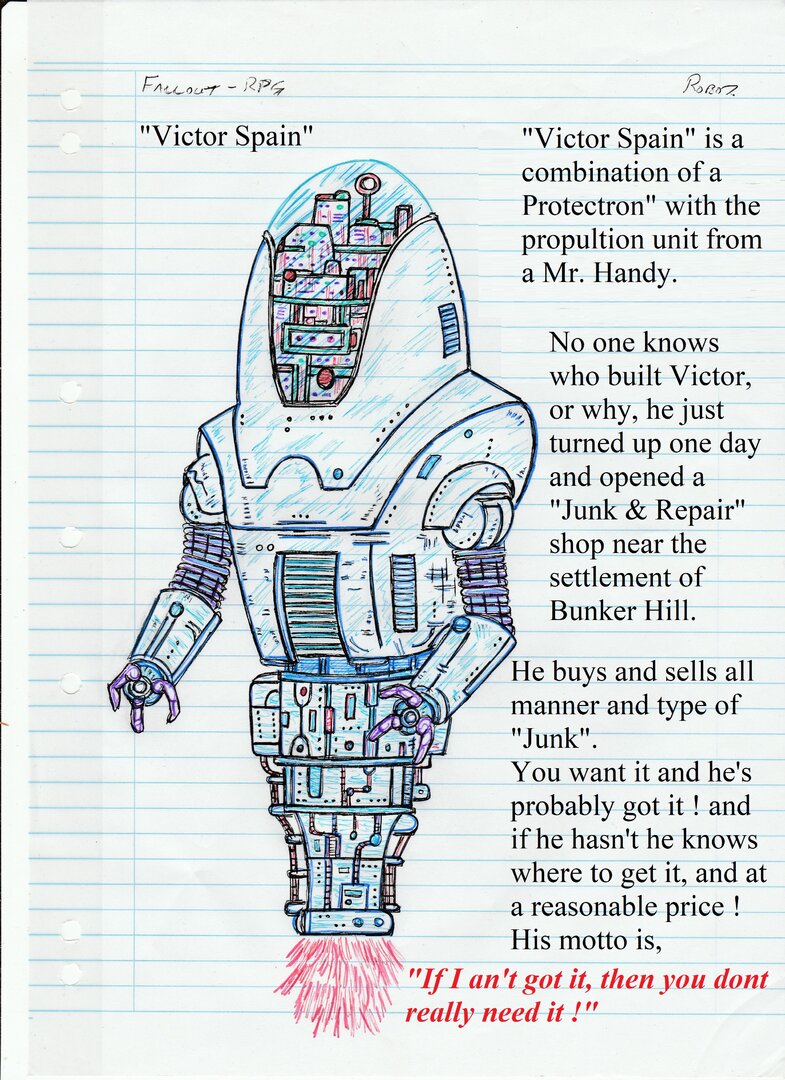 Fallout - RPG
Robot.
"Victor Spain"
"Victor Spain" is a
combination of a
Protectron" with the
propultion unit from
a Mr. Handy.
No one knows
who built Victor,
or why, he just
turned up one day
and opened a
"Junk & Repair"
shop near the
settlement of
Bunker Hill.
He buys and sells all
manner and type of
"Junk".
You want it and he's
probably got it ! and
if he hasn't he knows
where to get it, and at
a reasonable price !
His motto is,
"If I an't got it, then you dont
really need it !"